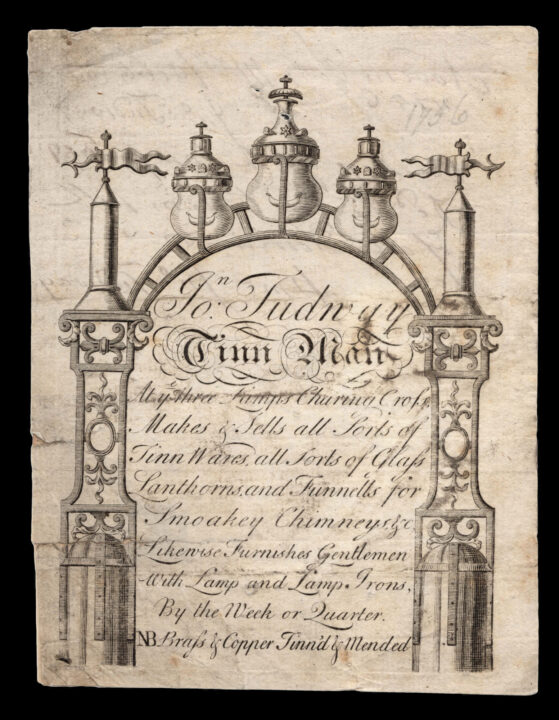 1756
Jo:n Tudway
Tinn Man
At ye three Lamps Charing Cross,
Makes & Sells all Sorts of
Tinn Wares, all Sorts of Glass
Lanthorns, and Funnells for
Smoakey Chimneys, &c
Likewise Furnishes Gentlemen
With Lamp and Lamp Irons,
By the Week or Quarter.
NB Brass & Copper Tinn'd & Mended